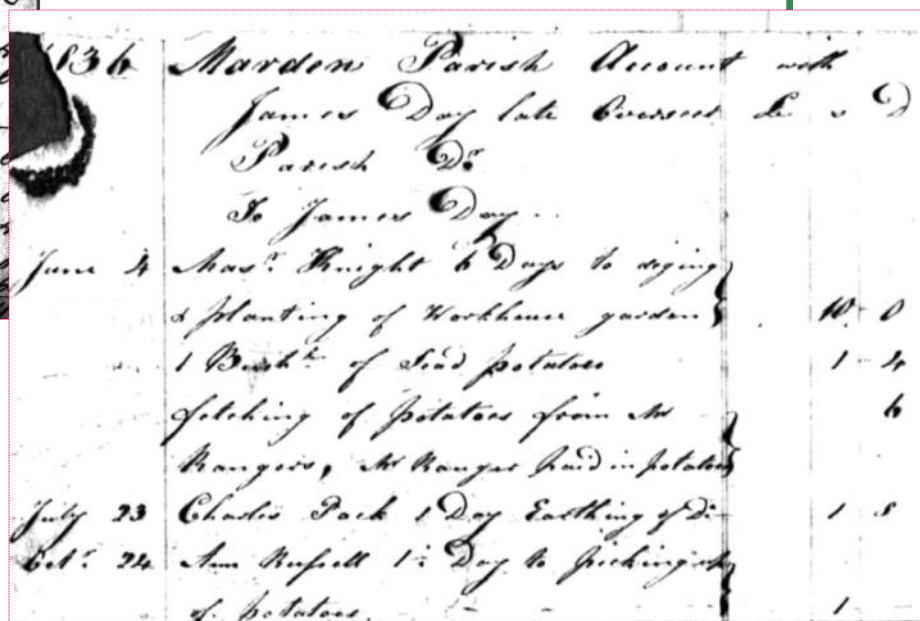 1836 Marden Parish Account with
James Day late Overseer £ s D
Parish Dr
To James Day
June 4 Masr. Knight 6 Days to diging
& planting of Workhouse garden 10 - 0
1 Bushl. of Sead potatoes 1 - 4
fetching of potatoes from Mr 6
Rangers, Mr Ranger paid in potatoes
July 23 Charles Pack 1 Day Earthing of Do 1 8
Octr. 24 Ann Russell 1½ Day to picking up
of potatoes 1 -